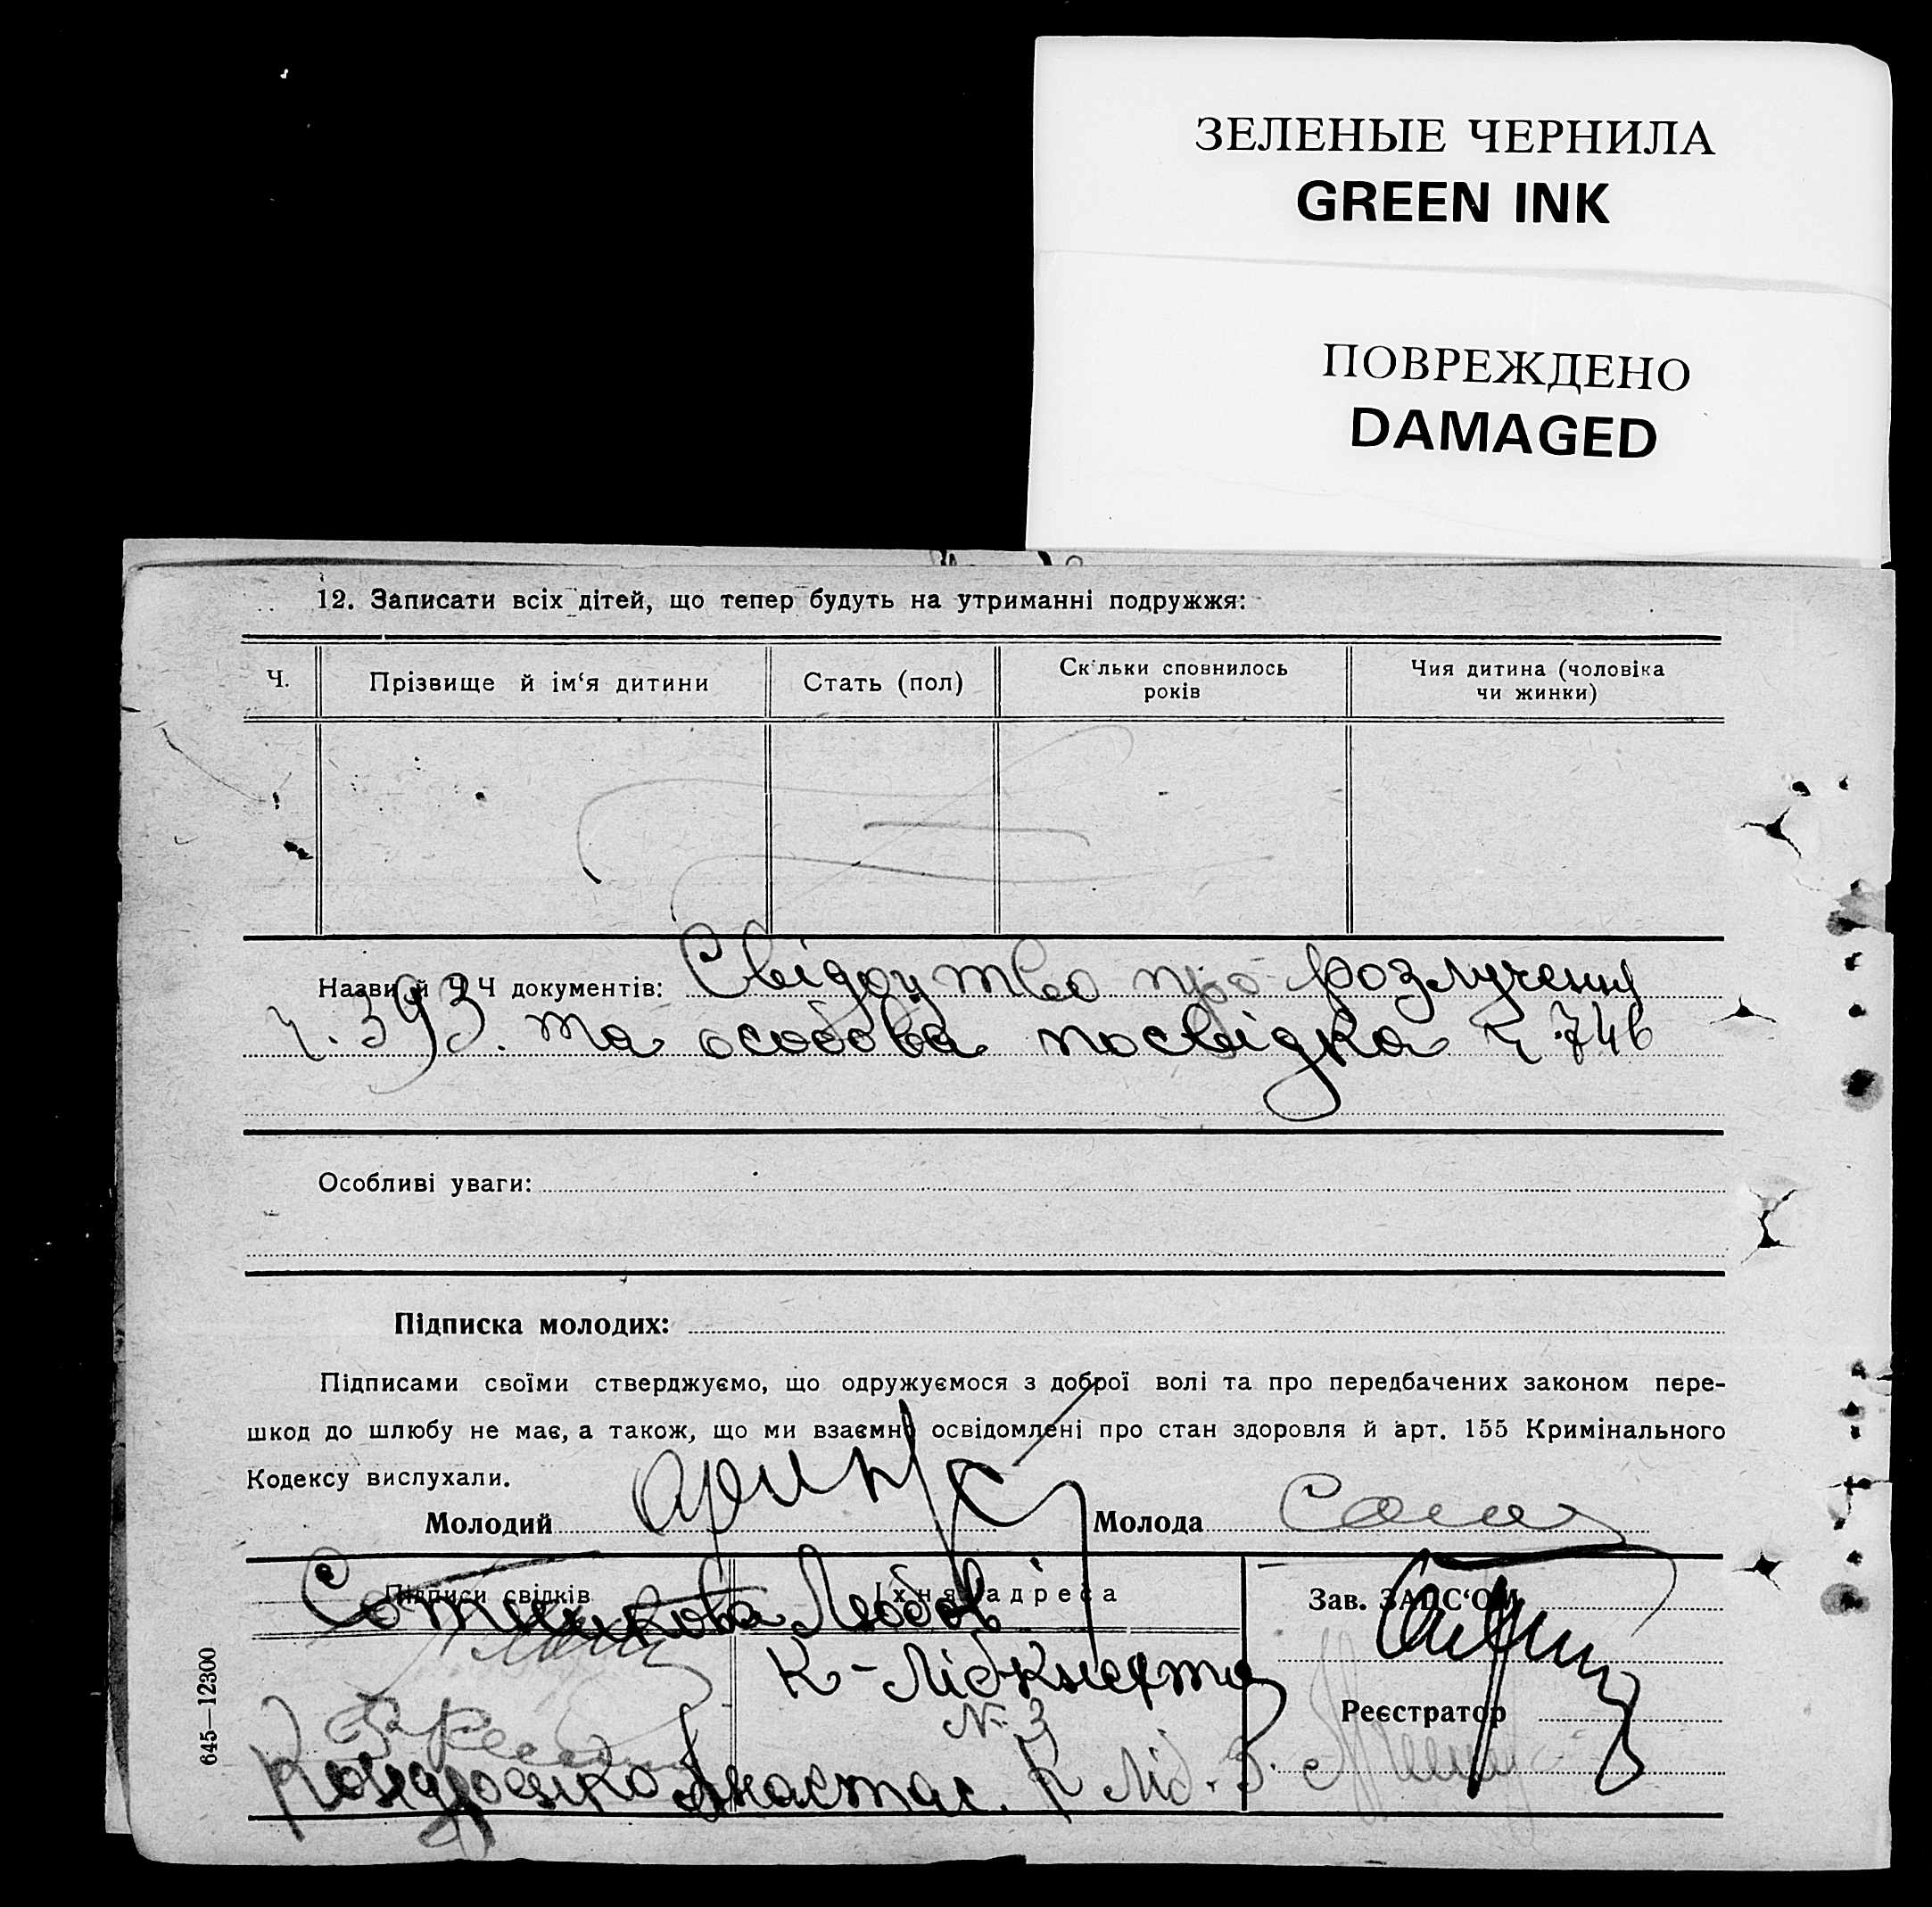 ЗЕЛЕНЫЕ ЧЕРНИЛА
GREEN INK
ПОВРЕЖДЕНО
DAMAGED
12. Записати всіх дітей, що тепер будуть на утриманні подружжя:
Ч.
Прізвище й ім‘я дитини
Стать (пол)
Скільки сповнилось
років
Чия дитина (чоловіка
чи жинки)
Назви й Ч Ч документів: Свідоцтво про розлучення
ч. 393. та особова посвідка ч. 746
Особливі уваги:
Підписка молодих:
Підписами своїми стверджуємо, що одружуємося з доброї волі та про передбачених законом пере-
шкод до шлюбу не має, а також, що ми взаємно освідомлені про стан здоровля й арт. 155 Кримінального
Кодексу вислухали.
Молодий
Молода
Підписи свідків
Їхня адреса
Зав. ЗАГС‘ОМ
Сотникова Любов
К-Лібкнехта
№ 3
Реєстратор
Кондрашко Анастас. К Ліб. 3.
645—12300